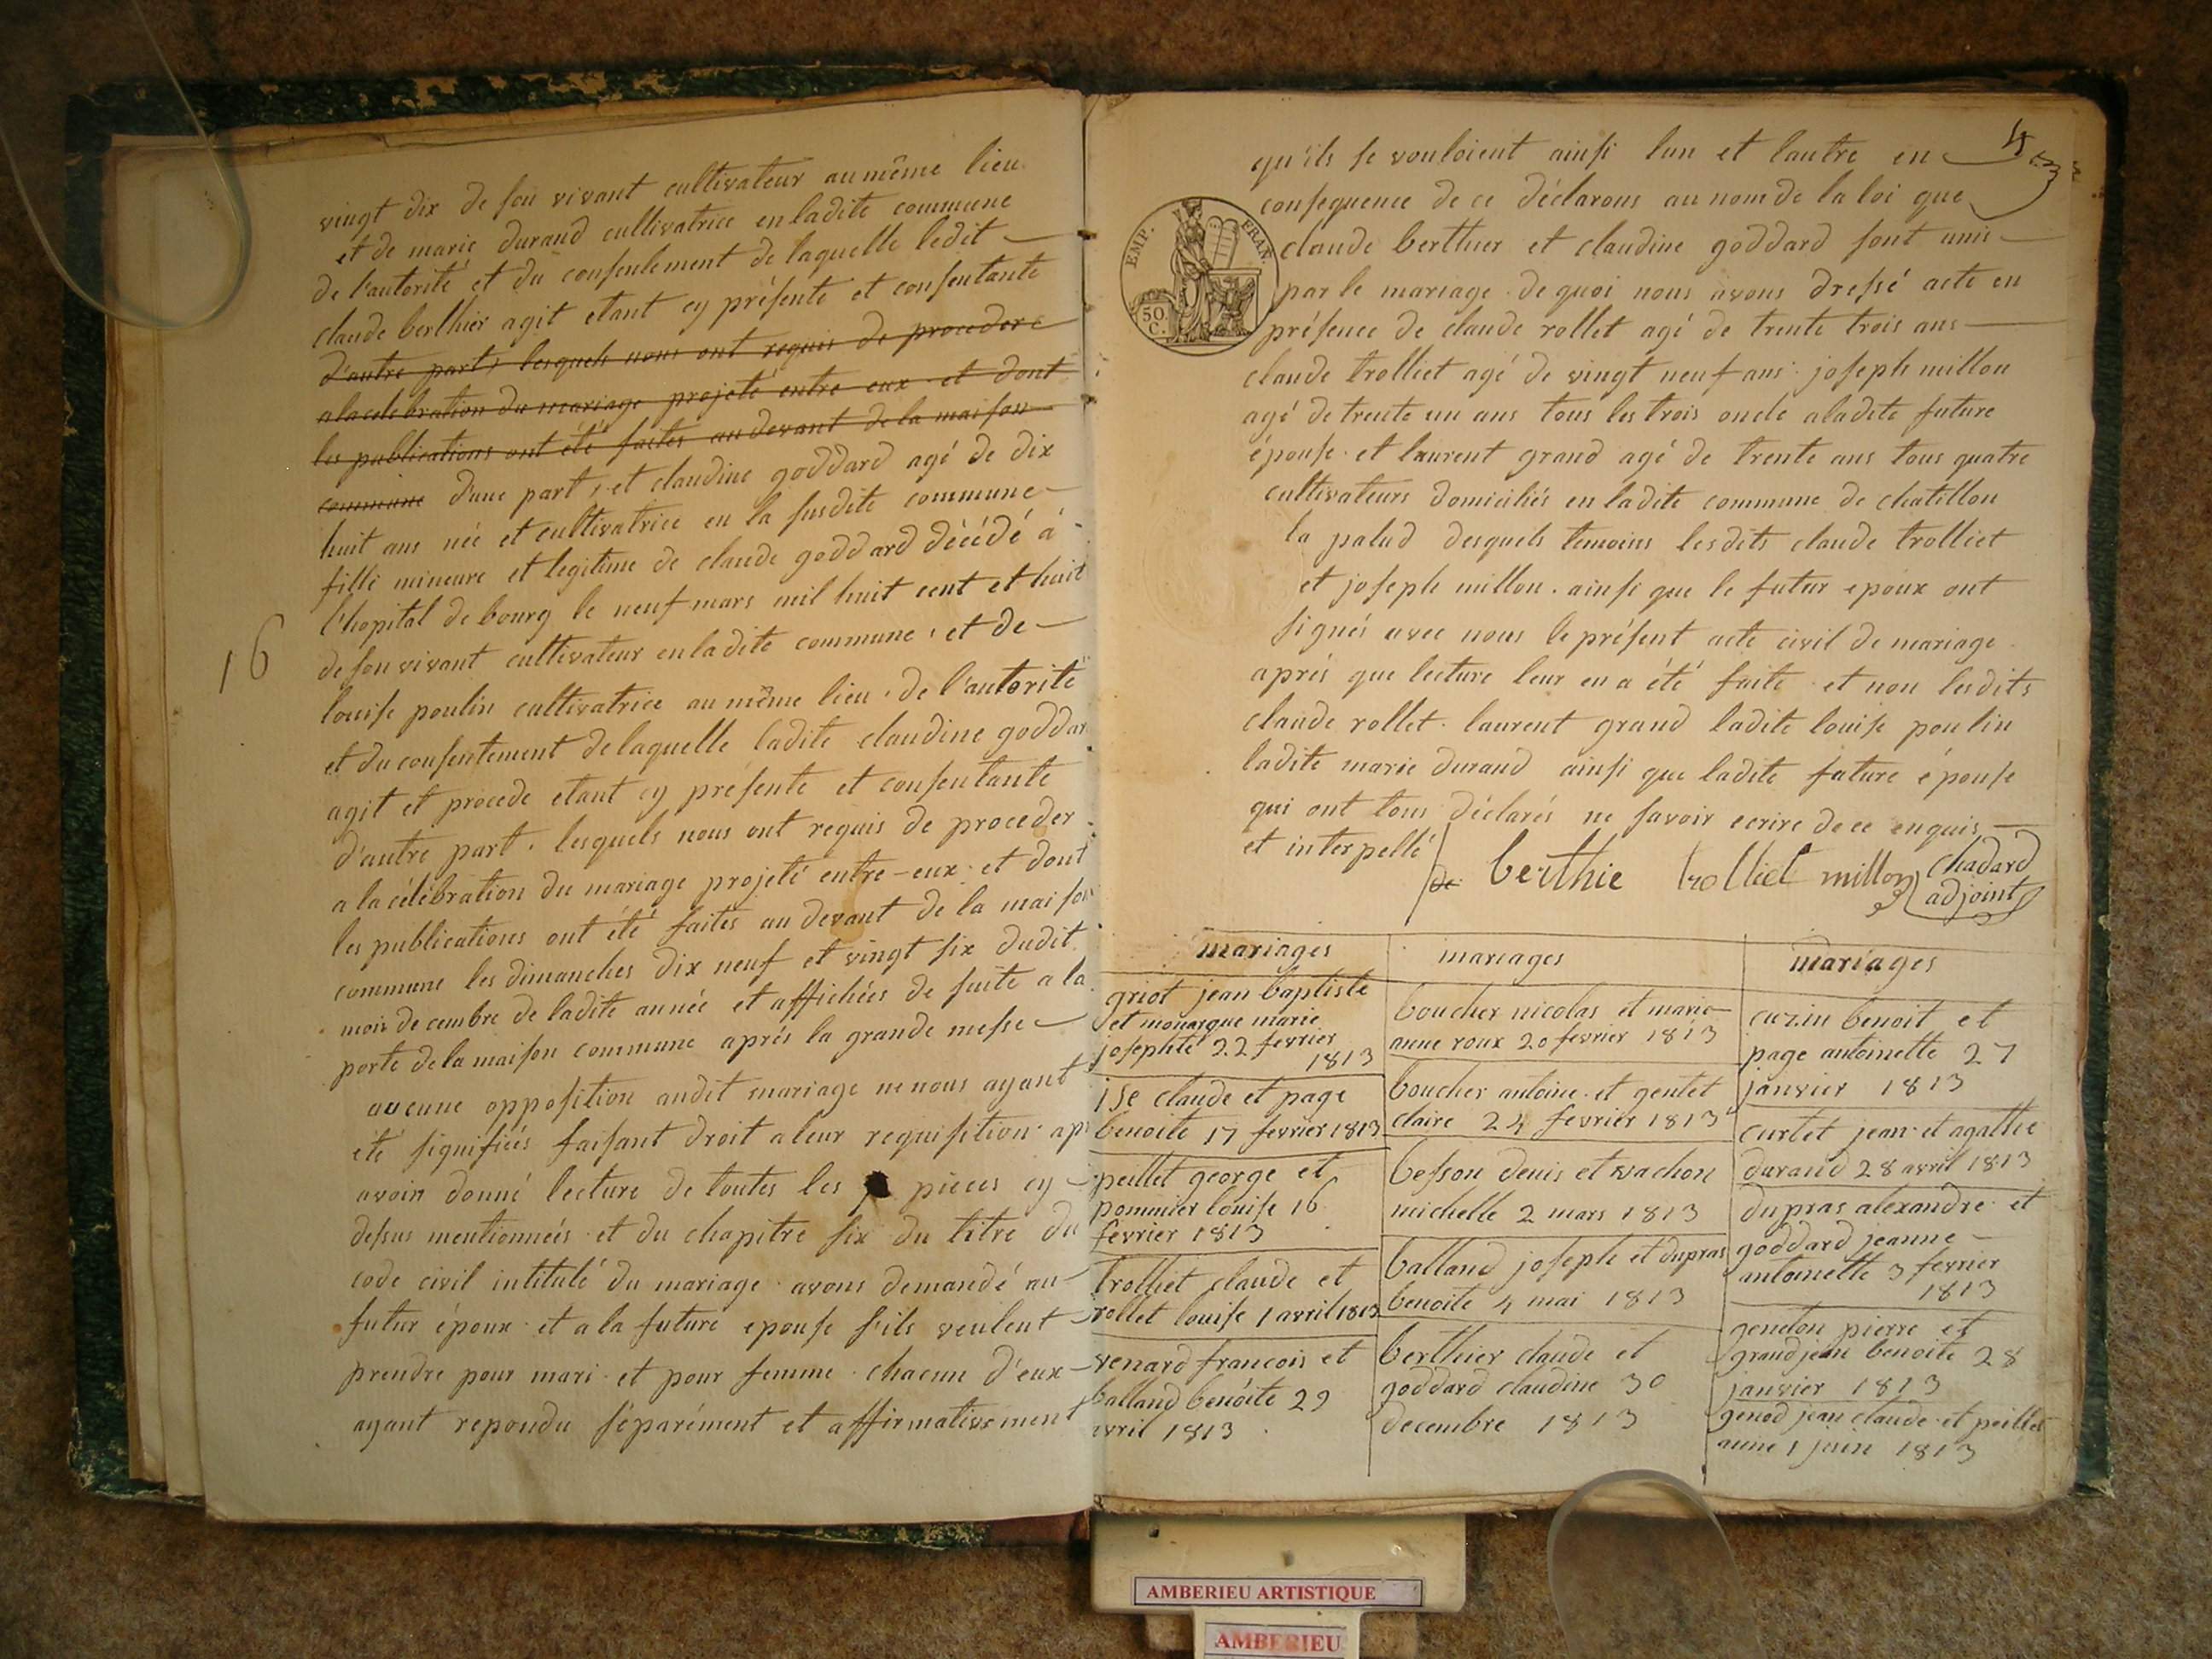 vingt dix de son vivant cultivateur au même lieu
et de marie durand cultivatrice en ladite commune
de l'autorité et du consentement de laquelle ledit
claude berthier agit etant cy présente et consentante
d'autre part, lesquels nous ont requis de procedere
a la celebration du mariage projeté entre eux et dont
les publications ont été faites au devant de la maison
commune d'une part, et claudine goddard agé de dix
huit ans née et cultivatrice en la susdite commune
fille mineure et legitime de claude goddard décédé à
l'hopital de bourg le neuf mars mil huit cent et huit
16
de son vivant cultivateur en ladite commune, et de
louise poulin cultivatrice au même lieu, de l'autorité
et du consentement de laquelle ladite claudine goddar
agit et procede etant cy présente et consentante
d'autre part, lesquels nous ont requis de proceder
a la célébration du mariage projeté entre-eux et dont
les publications ont été faites au devant de la maison
commune les dimanches dix neuf et vingt six dudit
mois decembre de ladite année et affichées de suite a la
porte de la maison commune aprés la grande messe
aucune opposition audit mariage ne nous ayant
été signifiés faisant droit a leur requisition ap
avoir donné lecture de toutes les pieces cy
dessus mentionneés et du chapitre six du titre du
code civil intitulé du mariage avons demandé au
futur époux et a la future epouse s'ils veulent
prendre pour mari et pour femme chacun d'eux
ayant repondu séparément et affirmativement
qu'ils se vouloient ainsi lun et lautre en
consequence de ce déclarons au nom de la loi que
claude berthier et claudine goddard sont unis
par le mariage de quoi nous avons dressé acte en
présence de claude rollet agé de trente trois ans
claude trolliet agé de vingt neuf ans joseph millon
agé de trente un ans tous les trois oncle a ladite future
épouse et laurent grand agé de trente ans tous quatre
cultivateurs domiciliés en ladite commune de chatillon
la palud desquels temoins lesdits claude trolliet
et joseph millon. ainsi que le futur epoux ont
signés avec nous le présent acte civil de mariage
aprés que lecture leur en a été faite et non lesdits
claude rollet. laurent grand ladite louise poulin
ladite marie durand ainsi que ladite future épouse
qui ont tous déclarés ne savoir ecrire de ce enquis
et interpellé
berthie trolliet millon chadard
adjoint
EMP. FRAN.
50.
C.
mariages
griot jean baptiste
et monarque marie
josephte 22 fevrier
1813
jse claude et page
benoite 17 fevrier 1813
peillet george et
pommier louise 16
fevrier 1813
trolliet claude et
rollet louise 1 avril 1813
venard francois et
balland benoite 29
avril 1813
mariages
boucher nicolas et marie
anne roux 20 fevrier 1813
boucher antoine et gentet
claire 24 fevrier 1813
besson denis et vachon
michelle 2 mars 1813
balland joseph et dupras
benoite 4 mai 1813
berthier claude et
goddard claudine 30
decembre 1813
mariages
cuzin benoit et
page antoinette 27
janvier 1813
curtet jean et agathe
durand 28 avril 1813
dupras alexandre et
goddard jeanne
antoinette 3 fevrier
1813
geneton pierre et
grand jean benoite 28
janvier 1813
genod jean claude et peillet
anne 1 juin 1813
AMBERIEU ARTISTIQUE
AMBERIEU